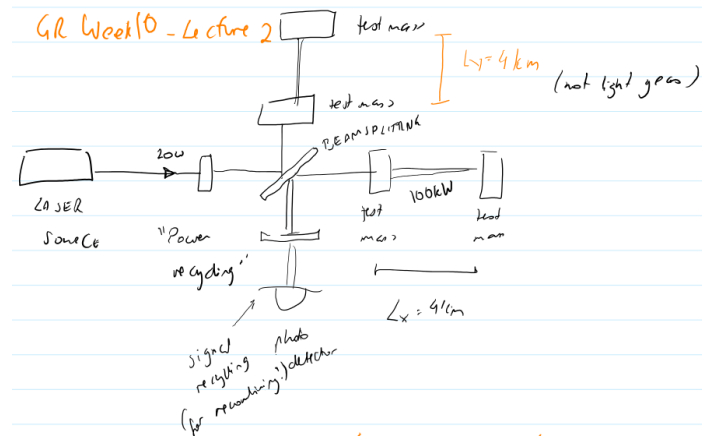 GR Week 10 - Lecture 2
test mass
Ly = 4 km
(not light years)
test mass
BEAMSPLITTING
20W
LASER
SOURCE
"Power
recycling"
100kW
test
mass
test
mass
Lx = 4km
signal
recycling
(for recombining?)
photo
detector